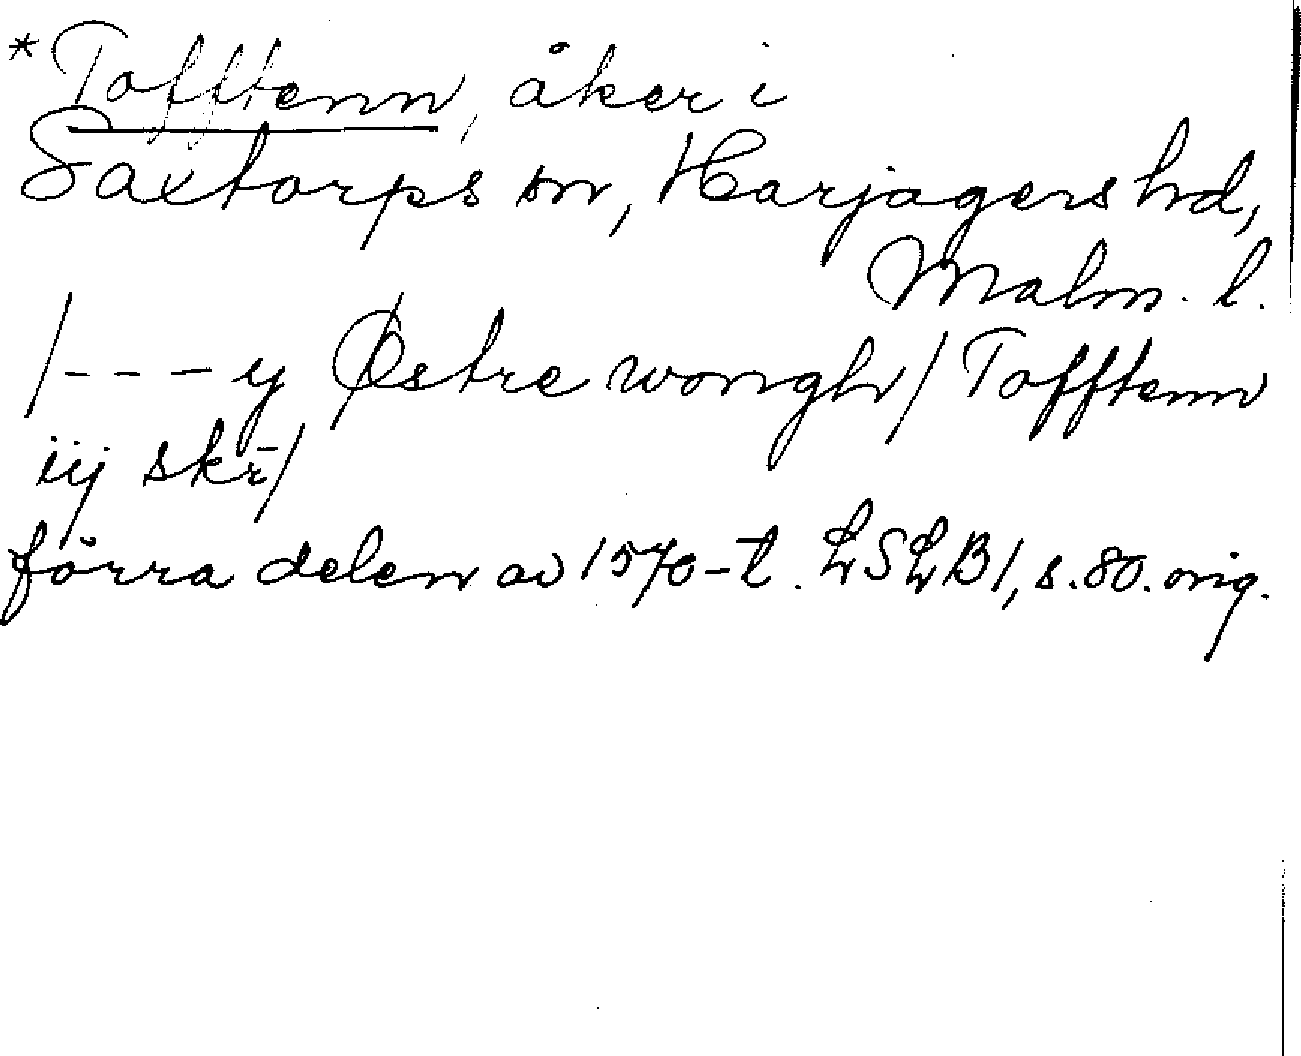 *Tofftenn, åker i
Saxtorps sn, Harjagers hd,
Malm. l.
/--- y Østre wongh/ Tofftenn
iij skr̄/
förra delen av 1570-t. LSLB1, s. 80. orig.